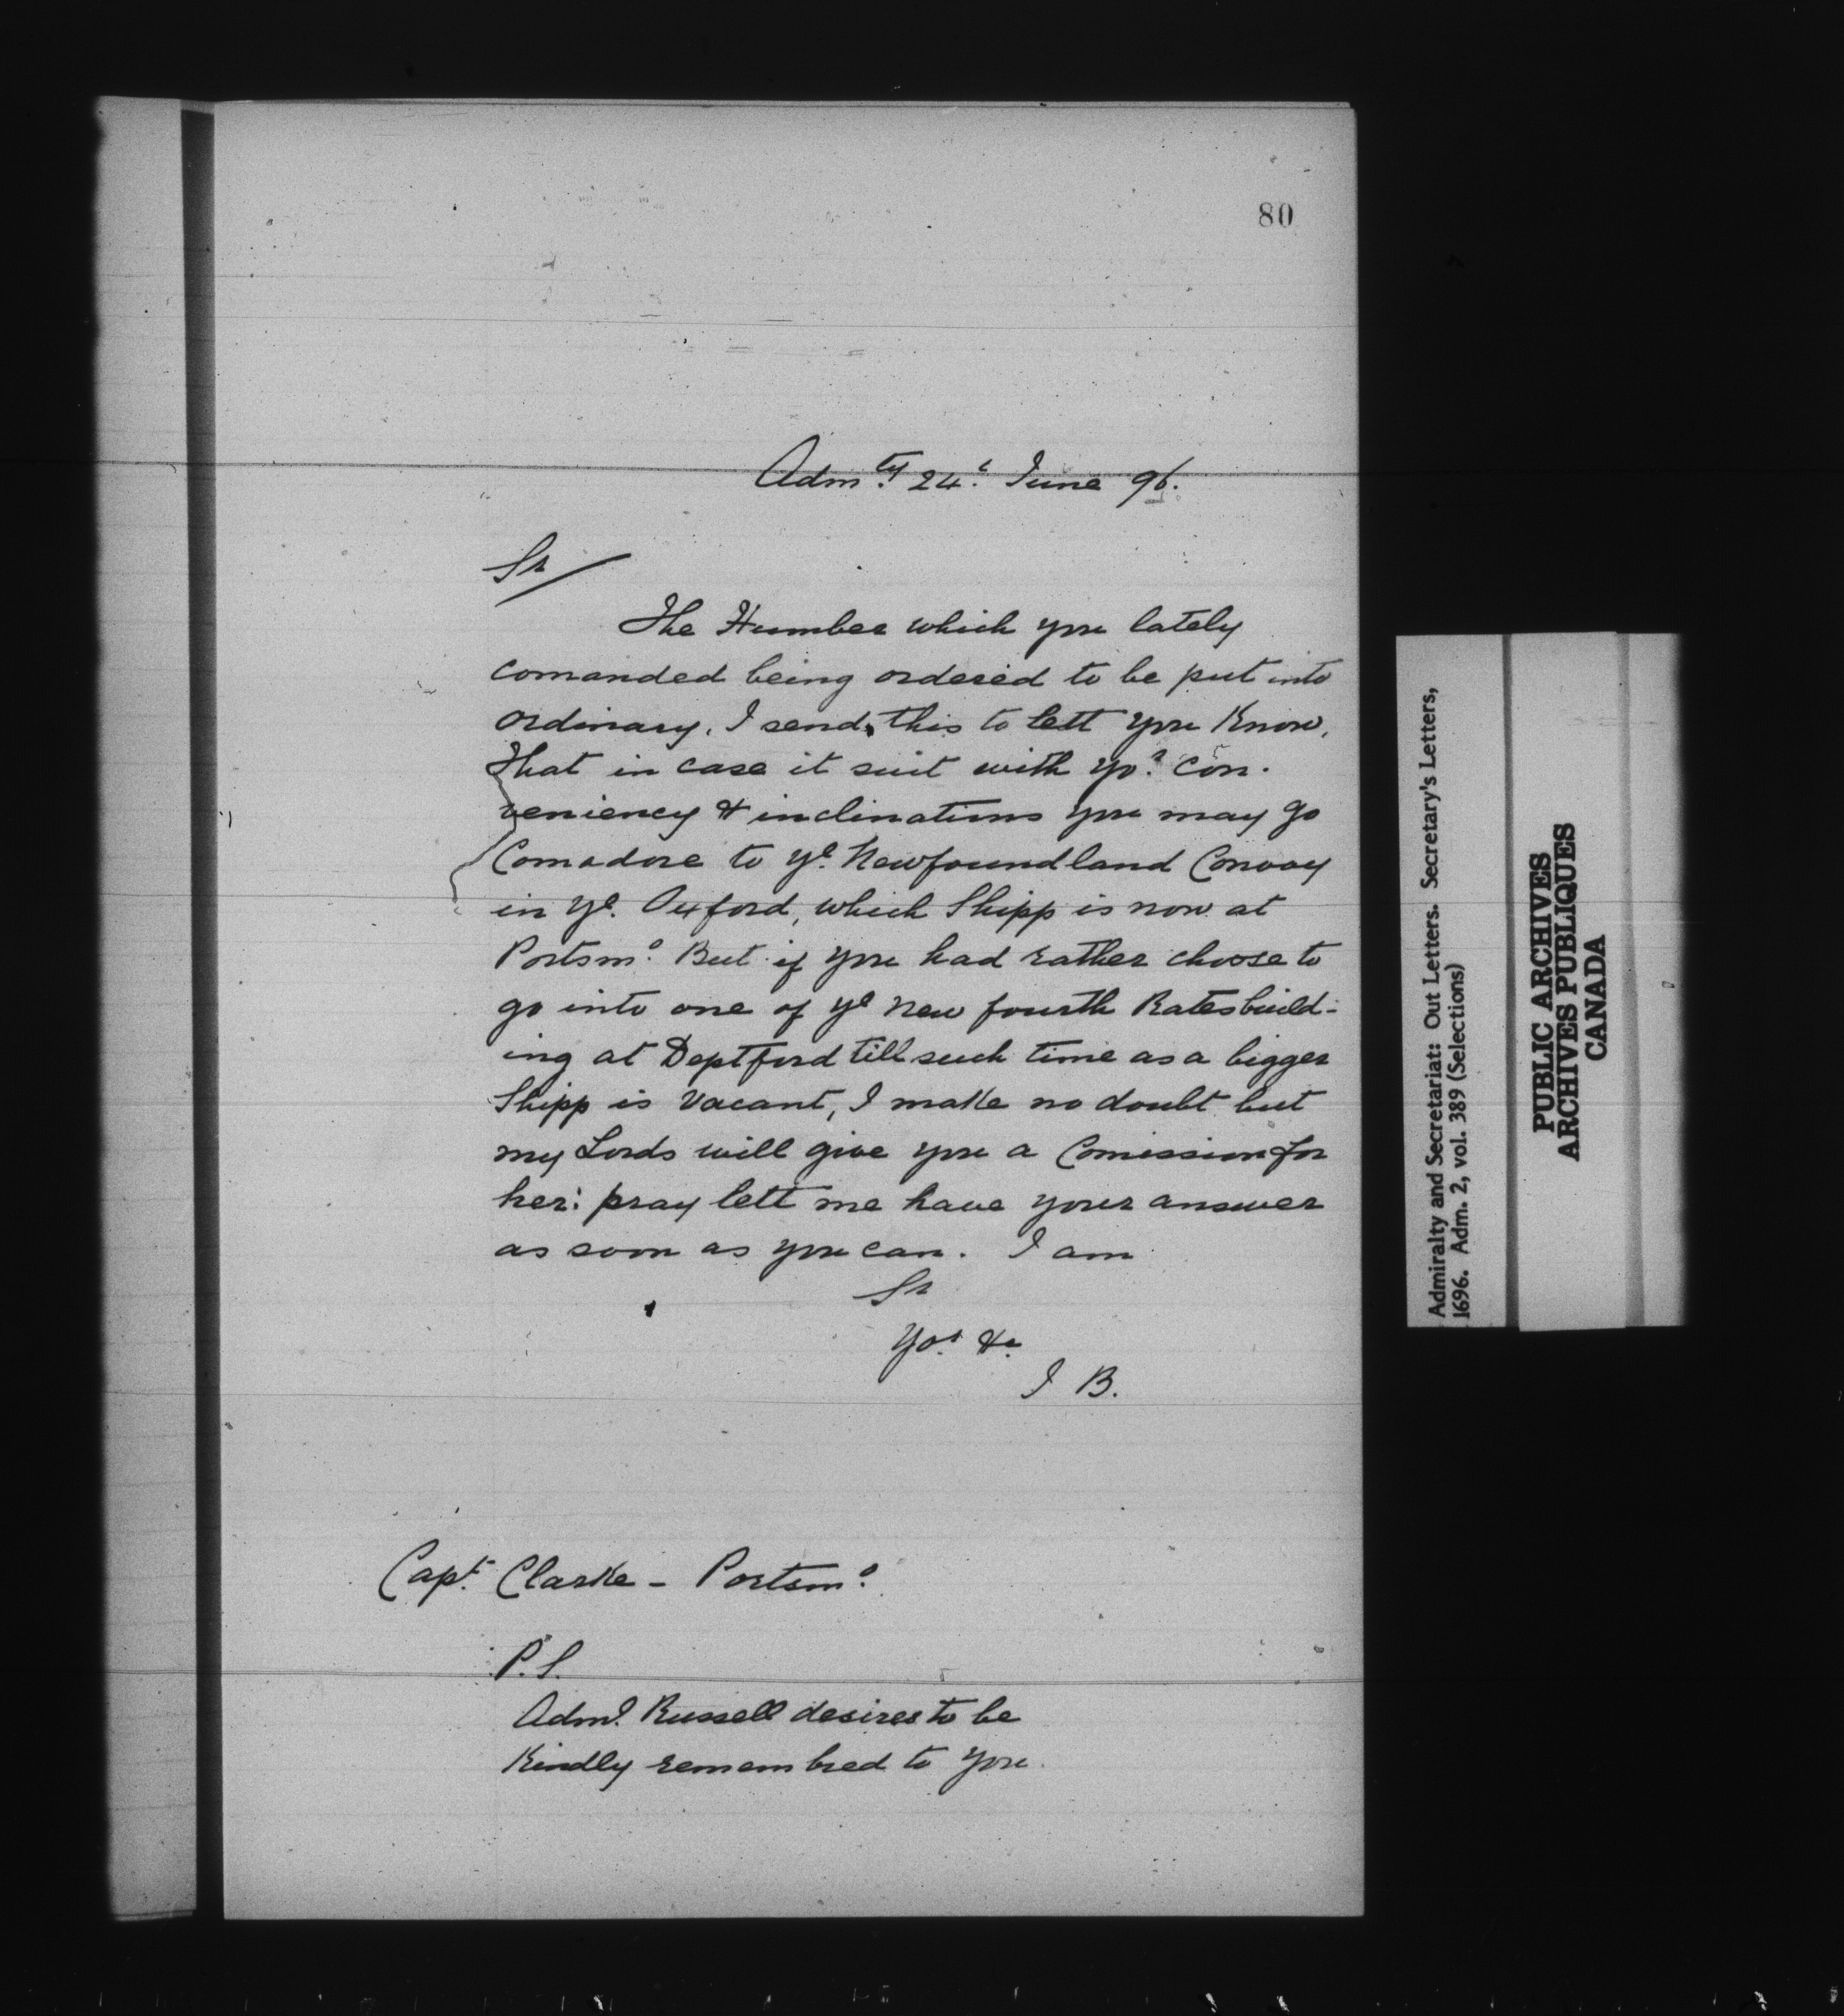 80
Adm.ty 24.t June 96.
Sr/
The Humber which you lately
comanded being ordered to be put into
ordinary, I send this to lett you Know,
that in case it suit with yo.r con-
veniency & inclinations you may go
Comadore to y.e Newfoundland Convoy
in y.e Oxford, which Shipp is now at
Portsm.o But if you had rather choose to
go into one of y.e new fourth Rates build-
ing at Deptford till such time as a bigger
Shipp is vacant, I make no doubt but
my Lords will give you a Comission for
her: pray lett me have your answer
as soon as you can. I am
Sr
Yo.r &c
J B.
Capt. Clarke - Portsm.o
P.S.
Adm.l Russell desires to be
Kindly remembred to you.
Admiralty and Secretariat: Out Letters. Secretary's Letters,
1696. Adm. 2, vol. 389 (Selections)
PUBLIC ARCHIVES
ARCHIVES PUBLIQUES
CANADA